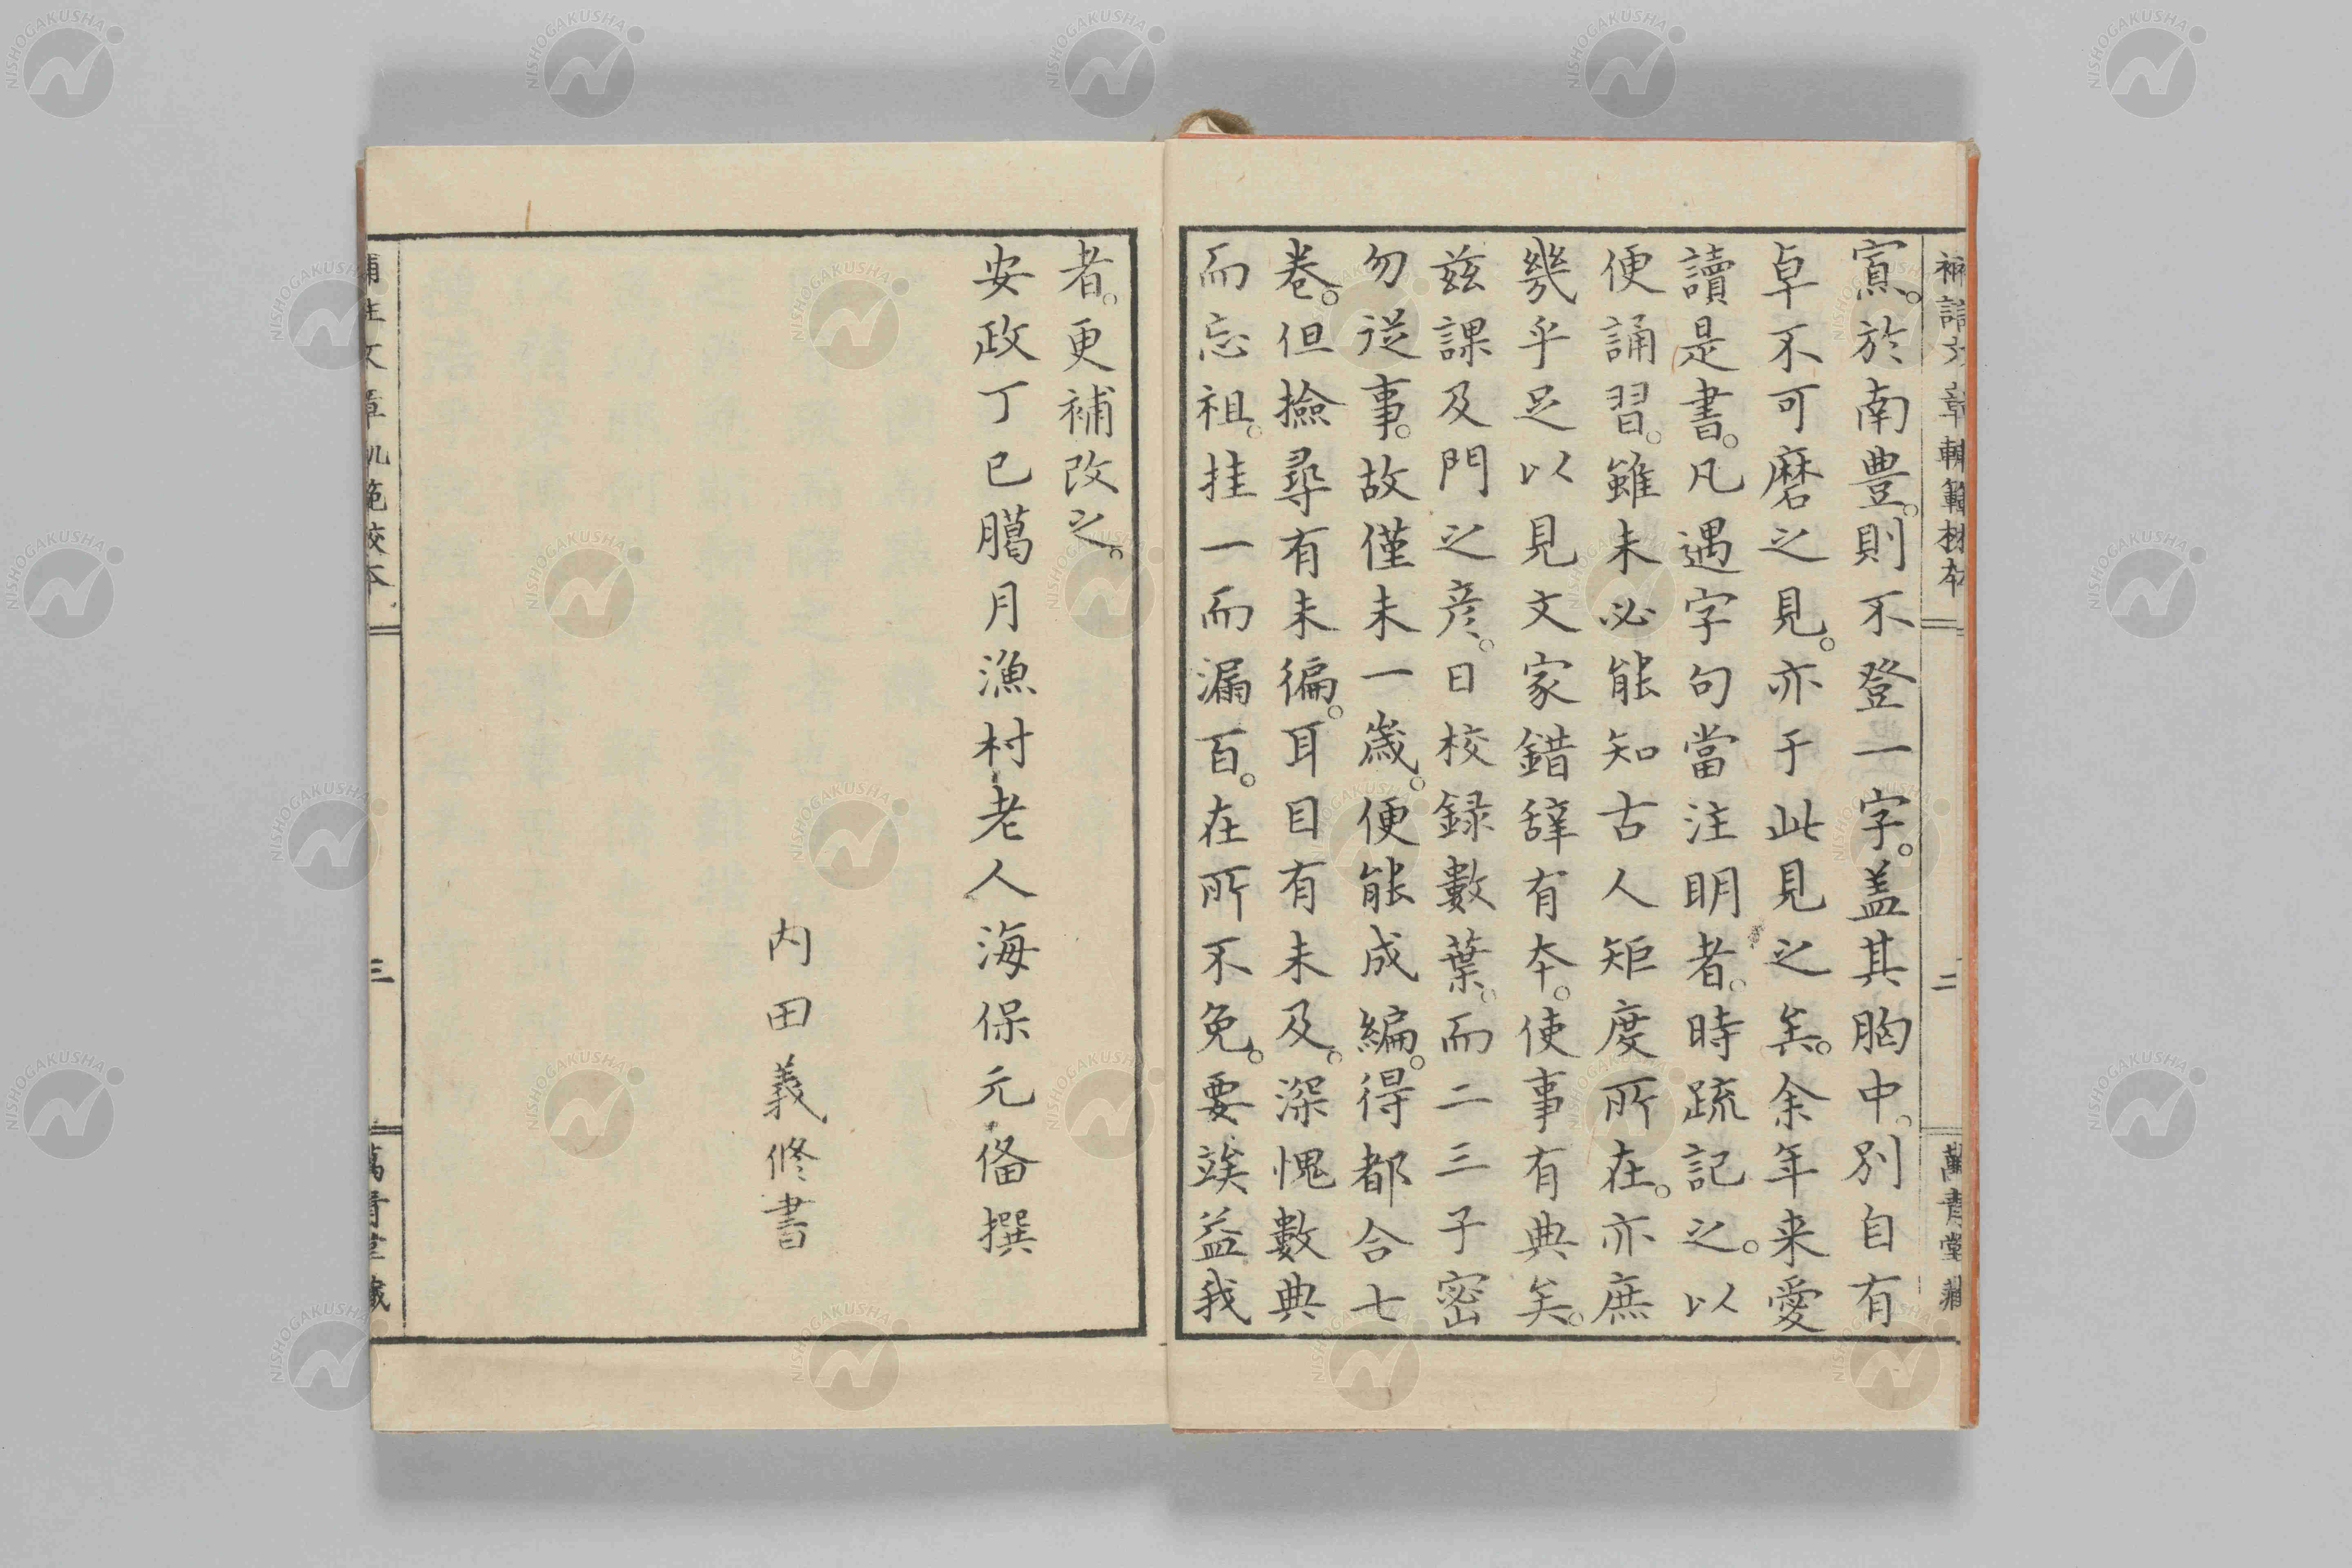 寘。於南豊。則不登一字。盖其胸中。別自有
卓不可磨之見。亦于此見之矣。余年来愛
讀是書。凡遇字句當注明者。時疏記之。以
便誦習。雖未必能知古人矩度所在。亦庶
幾乎足以見文家錯辞有夲。使事有典矣。
兹課及門之彦。日校録數葉。而二三子密
勿従事。故僅未一歳。便能成編。得都合七
巻。但撿尋有未徧。耳目有未及。深愧數典
而忘祖。挂一而漏百。在所不免。要竢益我
二
萬青堂藏
者。更補改之。
安政丁巳臈月漁村老人海保元俻撰
内田義脩書
三
NISHOGAKUSHA